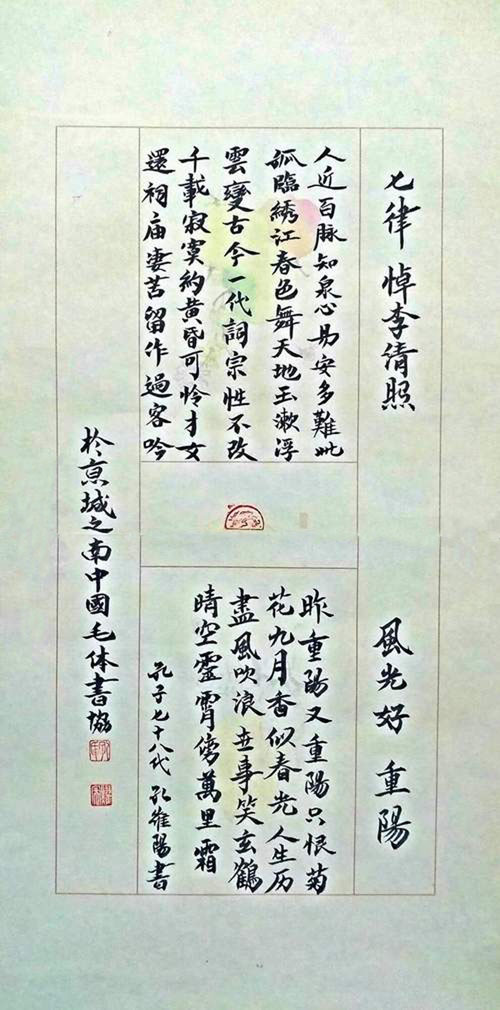 七律 悼李清照
人近百脉知泉心易安多難此
孤臨綉江春色舞天地玉漱浮
雲變古今一代詞宗性不改
千載寂寞約黄昏可怜才女
還祠庙凄苦留作過客吟
風光好 重陽
昨重陽又重陽只恨菊
花九月香似春光人生历
盡風吹浪世事笑玄鶴
晴空靈霄傍萬里霜
孔子七十八代孔維陽書
於京城之南中國毛体書協